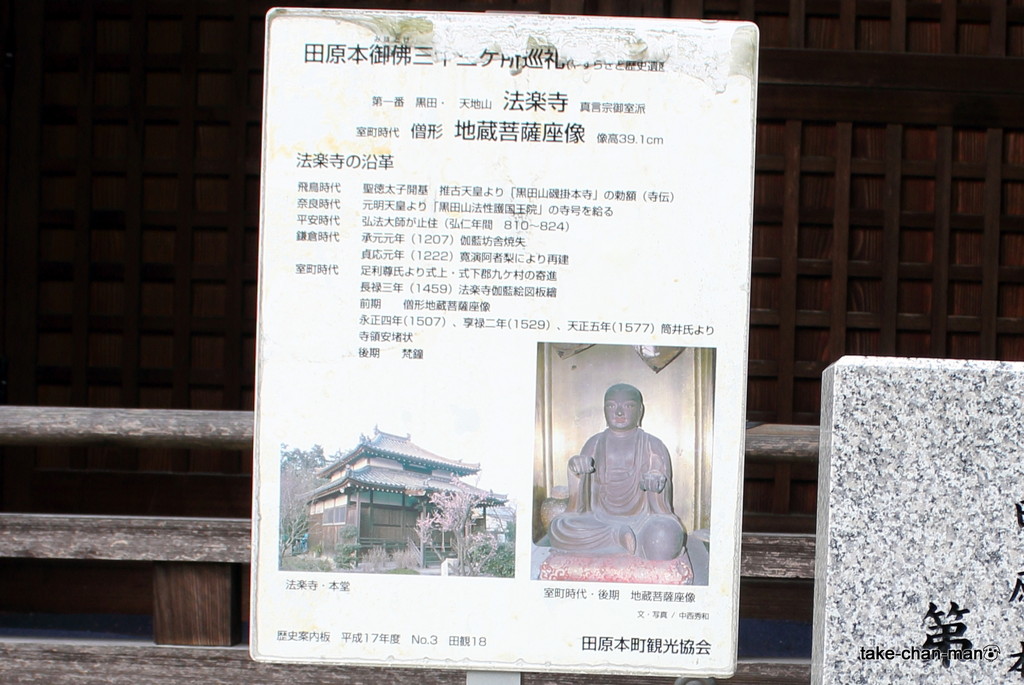 田原本御佛三十三ケ所巡礼
第一番　黒田・　天地山　法楽寺　真言宗御室派
室町時代　僧形　地蔵菩薩座像　像高39.1cm
法楽寺の沿革
飛鳥時代　聖徳太子開基　推古天皇より「黒田山磯掛本寺」の勅額（寺伝）
奈良時代　元明天皇より「黒田山法性護国王院」の寺号を給る
平安時代　弘法大師が止住（弘仁年間　810～824）
鎌倉時代　承元元年（1207）伽藍坊舎焼失
貞応元年（1222）寛演阿者梨により再建
室町時代　足利尊氏より式上・式下郡九ケ村の寄進
長禄三年（1459）法楽寺伽藍絵図板繪
前期　僧形地蔵菩薩座像
永正四年(1507）、享禄二年(1529）、天正五年(1577）筒井氏より
寺領安堵状
後期　梵鐘
法楽寺・本堂
室町時代・後期　地蔵菩薩座像
文・写真 / 中西秀和
歴史案内板　平成17年度　No.3　田観18
田原本町観光協会
第
take-chan-man